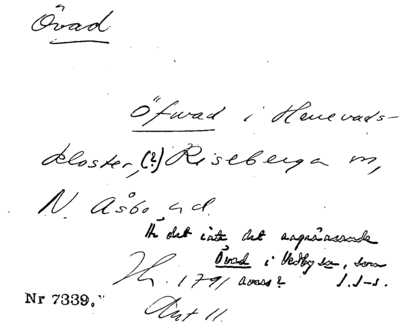 Övad
Öfvad i Herrevads-
kloster, (?) Riseberga sn,
N. Åsbo hd.
Är det inte det angränsande
Övad i Vedby sn, som
Hr. 1791 avses? S.I-s.
Nr 7339.
Akt 11.